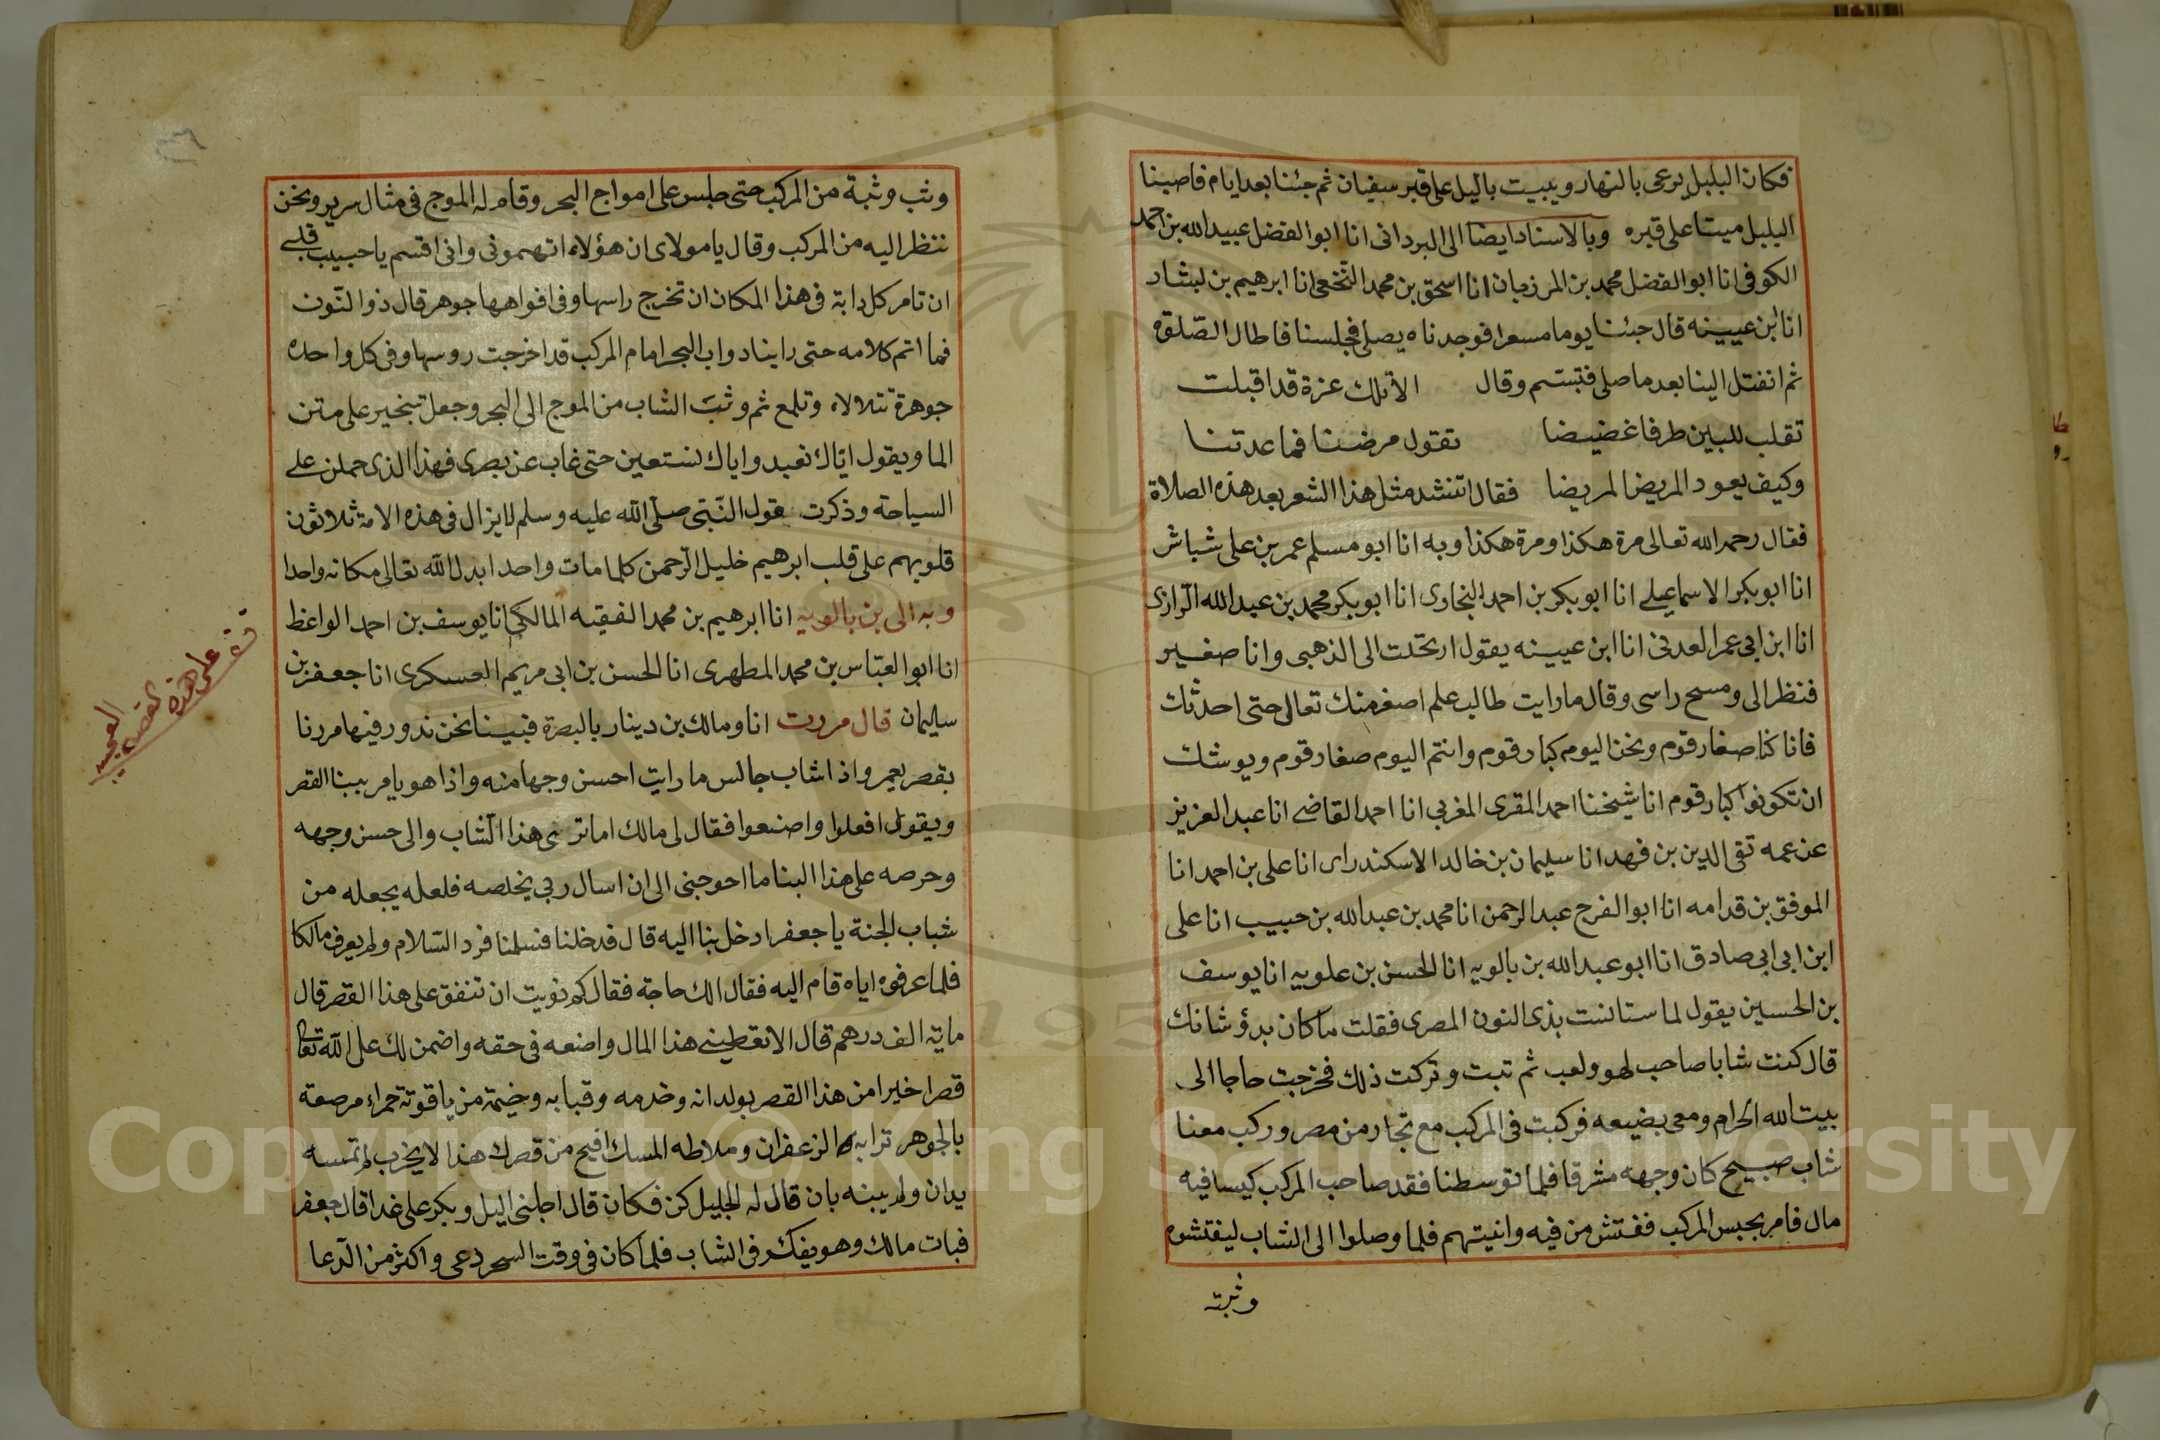 فكان البلبل يرعى بالنهار ويبيت باليل على قبر سفيان ثم جئنا بعد ايام فاصبنا
البلبل ميتا على قبره وبالاسناد ايضا الى البرداني انا ابو الفضل عبيد الله بن احمد
الكوفي انا ابو الفضل محمد بن المرزبان انا اسحق بن محمد النخعي انا ابرهيم بن بشار
انا ابن عيينه قال جئنا يوما مسعرا فوجدناه يصلي فجلسنا فاطال الصلوة
ثم انفتل الينا بعد ما صلى فتبسم وقال الا تلك عزة قد اقبلت
تقلب للبين طرفا غضيضا تقول مرضنا فما عدتنا
وكيف يعود المريض المريضا فقال اتنشد مثل هذا الشعر بعد هذه الصلاة
فقال رحمه الله تعالى مرة هكذا ومرة هكذا وبه انا ابو مسلم عمر بن على شباش
انا ابو بكر الاسماعيلي انا ابو بكر بن احمد البخارى انا ابو بكر محمد بن عبد الله الرازى
انا ابن ابي عمر العدني انا ابن عيينه يقول ارتحلت الى الذهبى وانا صغير
فنظر الى ومسح راسى وقال ما رايت طالب علم اصغر منك تعالى حتى احدثك
فانا كنا صغار قوم ونحن اليوم كبار قوم وانتم اليوم صغار قوم ويوشك
ان تكونوا كبار قوم انا شيخنا احمد المقرى المغربي انا احمد القاضى انا عبد العزيز
عن عمه تقى الدين بن فهد انا سليمان بن خالد الاسكندراى انا على بن احمد انا
الموفق بن قدامه انا ابو الفرج عبد الرحمن انا محمد بن عبد الله بن حبيب انا على
ابن ابى ابى صادق انا ابو عبد الله بن بالويه انا الحسن بن علويه انا يوسف
بن الحسين يقول لما ستانست بذى النون المصرى فقلت ما كان بدؤ شانك
قال كنت شابا صاحب لهو ولعب ثم تبت وتركت ذلك فخرجت حاجا الى
بيت الله الحرام ومعى بضيعه فركبت فى المركب مع تجار من مصر وركب معنا
شاب صبيح كان وجهه مشرقا فلما توسطنا فقد صاحب المركب كيسا فيه
مال فامر بحبس المركب ففتش من فيه واتبهم فلما وصلوا الى الشاب ليفتشوه
وثبته
وثب وثبة من المركب حتى جلس على امواج البحر وقام له الموج فى مثال سرير ونحن
ننظر اليه من المركب وقال يا مولاى ان هؤلاء اتهمونى وانى اقسم يا حبيب قلبى
ان تامر كل دابة فى هذا المكان ان تخرج راسها وفى افواهها جوهر قال ذو النون
فما اتم كلامه حتى راينا دواب البحر امام المركب قد اخرجت روسها وفى كل واحده
جوهرة تتلالاء وتلمع ثم وثب الشاب من الموج الى البحر وجعل يتبختر على متن
الما ويقول اياك نعبد واياك نستعين حتى غاب عن بصرى فهذا الذى حملن على
السياحة وذكرت بقول النبى صلى الله عليه وسلم لا يزال فى هذه الامة ثلاثون
قلوبهم على قلب ابرهيم خليل الرحمن كلما مات واحد ابدل الله تعالى مكانه واحدا
وبه الى بن بالويه انا ابرهيم بن محمد الفقيه المالكى انا يوسف بن احمد الواعظ
انا ابو العباس بن محمد المطهرى انا الحسن بن ابى مريم العسكرى انا جعفر بن
سليمان قال مررت انا ومالك بن دينار بالبصرة فبينا نحن ندور فيها مررنا
بقصر يعمر واذا شاب جالس ما رايت احسن وجها منه واذا هو يامر ببنا القصر
ويقول افعلوا واصنعوا فقال لى مالك اما ترى هذا الشاب والى حسن وجهه
وحرصه على هذا البنا ما احوجنى الى ان اسال ربى يخلصه فلعله يجعله من
شباب الجنة يا جعفر ادخل بنا اليه قال فدخلنا فسلمنا فرد السلام ولم يعرف مالكا
فلما عرفوه اياه قام اليه فقال الك حاجة فقال كم نويت ان تنفق على هذا القصر قال
ماية الف درهم قال الا تعطينى هذا المال واضعه فى حقه واضمن لك على الله تعالى
قصرا خيرا من هذا القصر بولدانه وخدمه وقبابه وخيمة من ياقوتة حمراء مرصعة
بالجوهر ترابه الزعفران وملاطه المسك افيح من قصرك هذا لا يخرب لم تمسه
يدان ولم يبنه بان قال له الجليل كن فكان قال اجلنى اليل وبكر على غدا قال جعفر
فبات مالك وهو يفكر فى الشاب فلما كان فى وقت السحر دعى واكثر من الدعا
قف على هذه القصة العجيبه
Copyright © King Saud University